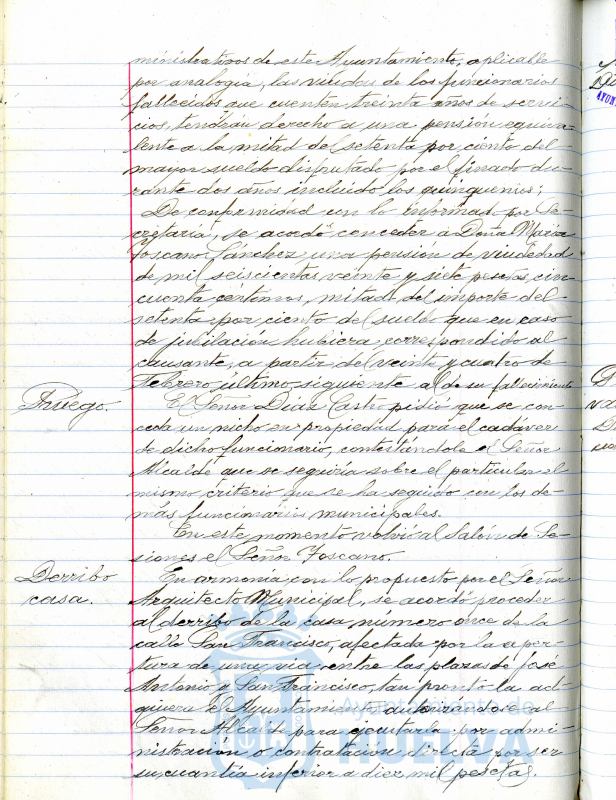 ministrativos de este Ayuntamiento, aplicable
por analogía, las viudas de los funcionarios
fallecidos que cuenten treinta años de servi-
cios, tendrán derecho a una pensión equiva-
lente a la mitad del setenta por ciento del
mayor sueldo disfrutado por el finado du-
rante dos años incluido los quinquenios;
De conformidad con lo informado por Se-
cretaría, se acordó conceder a Doña María
Toscano Sánchez una pensión de viudedad
de mil seiscientas veinte y siete pesetas, cin-
cuenta céntimos, mitad del importe del
setenta por ciento del sueldo que en caso
de jubilación hubiera correspondido al
causante, a partir del veinte y cuatro de
Febrero último siguiente al de su fallecimiento
Ruego.
El Señor Díaz Castro pidió que se con-
ceda un nicho en propiedad para el cadáver
de dicho funcionario, contestándole el Señor
Alcalde que se seguiría sobre el particular el
mismo criterio que se ha seguido con los de-
más funcionarios municipales.
En este momento volvió al Salón de Se-
siones el Señor Toscano.
Derribo
casa.
En armonía con lo propuesto por el Señor
Arquitecto Municipal, se acordó proceder
al derribo de la casa número once de la
calle San Francisco, afectada por la aper-
tura de una vía entre las plazas de José
Antonio y San Francisco, tan pronto la ad-
quiera el Ayuntamiento, autorizándose al
Señor Alcalde para ejecutarlo por admi-
nistración o contratación directa por ser
su cuantía inferior a diez mil pesetas.
Ayuntamiento de
HUELVA